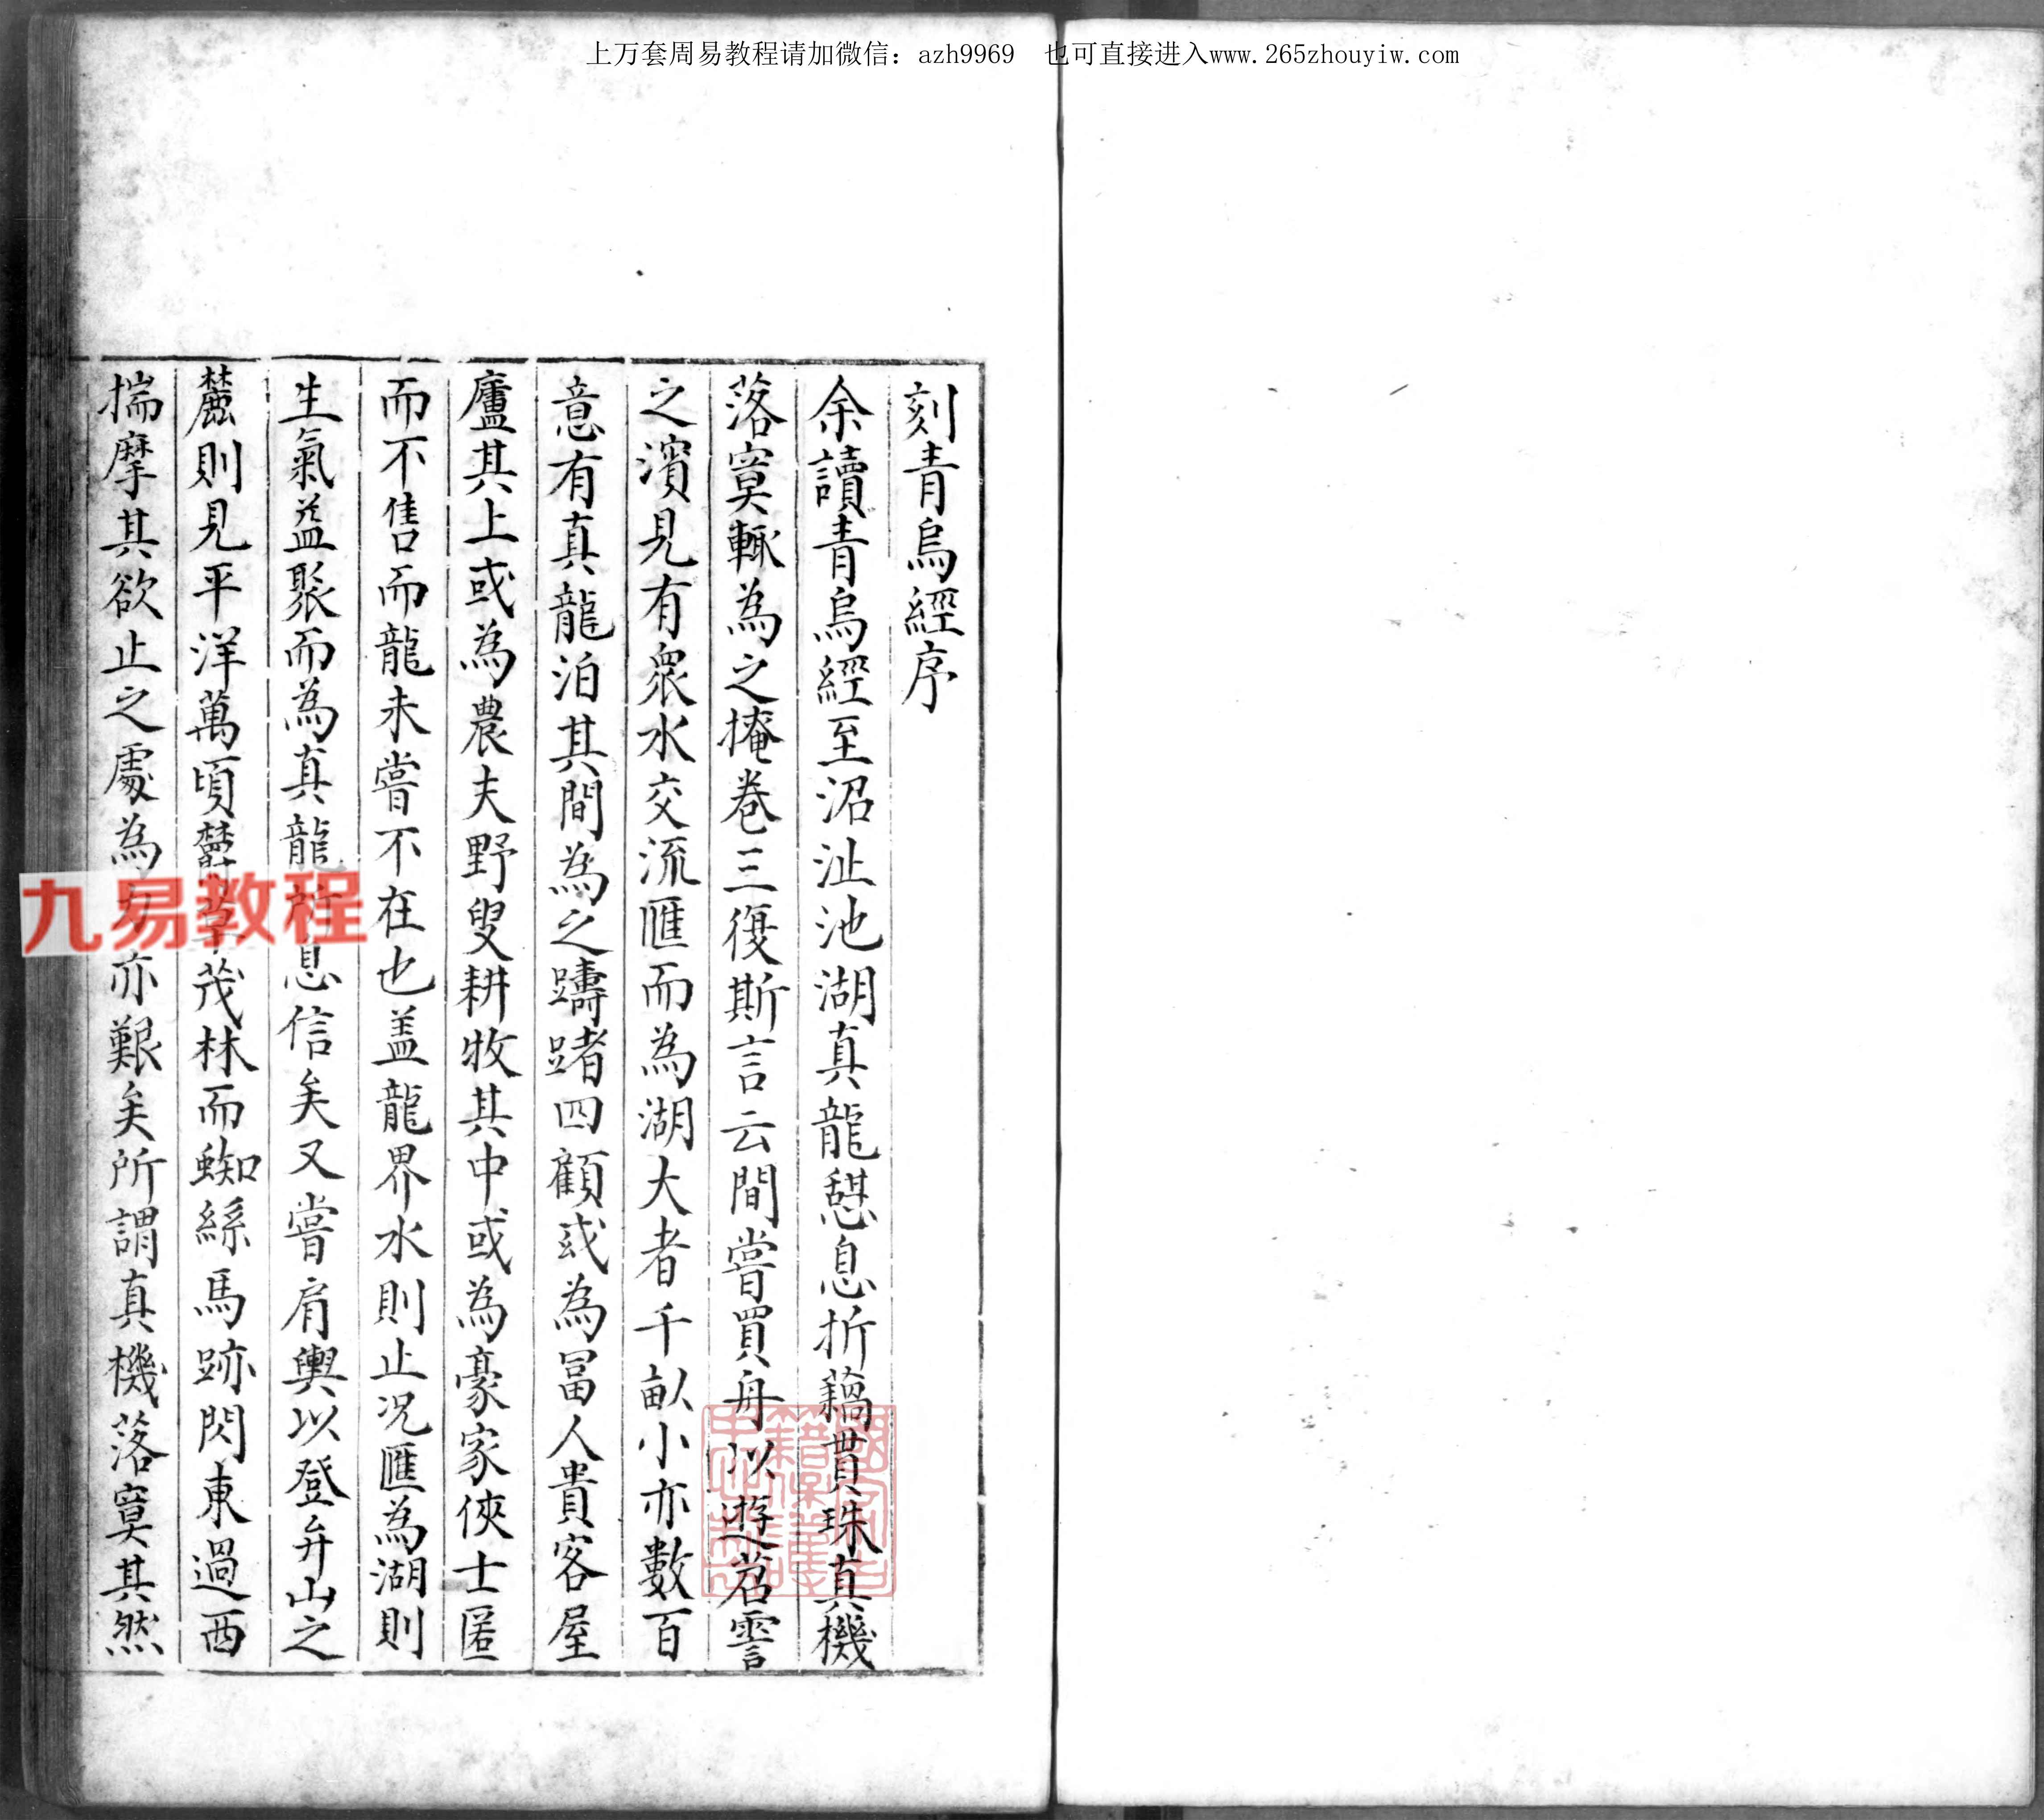 上万套周易教程请加微信：azh9969　也可直接进入www.265zhouyiw.com
刻青烏經序
余讀青烏經至沼沚池湖真龍憇息折藕貫珠真機
落寞輙為之掩卷三復斯言云間嘗買舟以遊苕霅
之濱見有衆水交流匯而為湖大者千畝小亦數百
意有真龍泊其間為之躊躇四顧或為冨人貴客屋
廬其上或為農夫野叟耕牧其中或為豪家俠士匿
而不售而龍未嘗不在也盖龍界水則止况匯為湖則
生氣益聚而為真龍所息信矣又嘗肩輿以登弁山之
麓則見平洋萬頃茂林而蜘絲馬跡閃東過西
揣摩其欲止之處為亦艱矣所謂真機落寞其然
九易教程